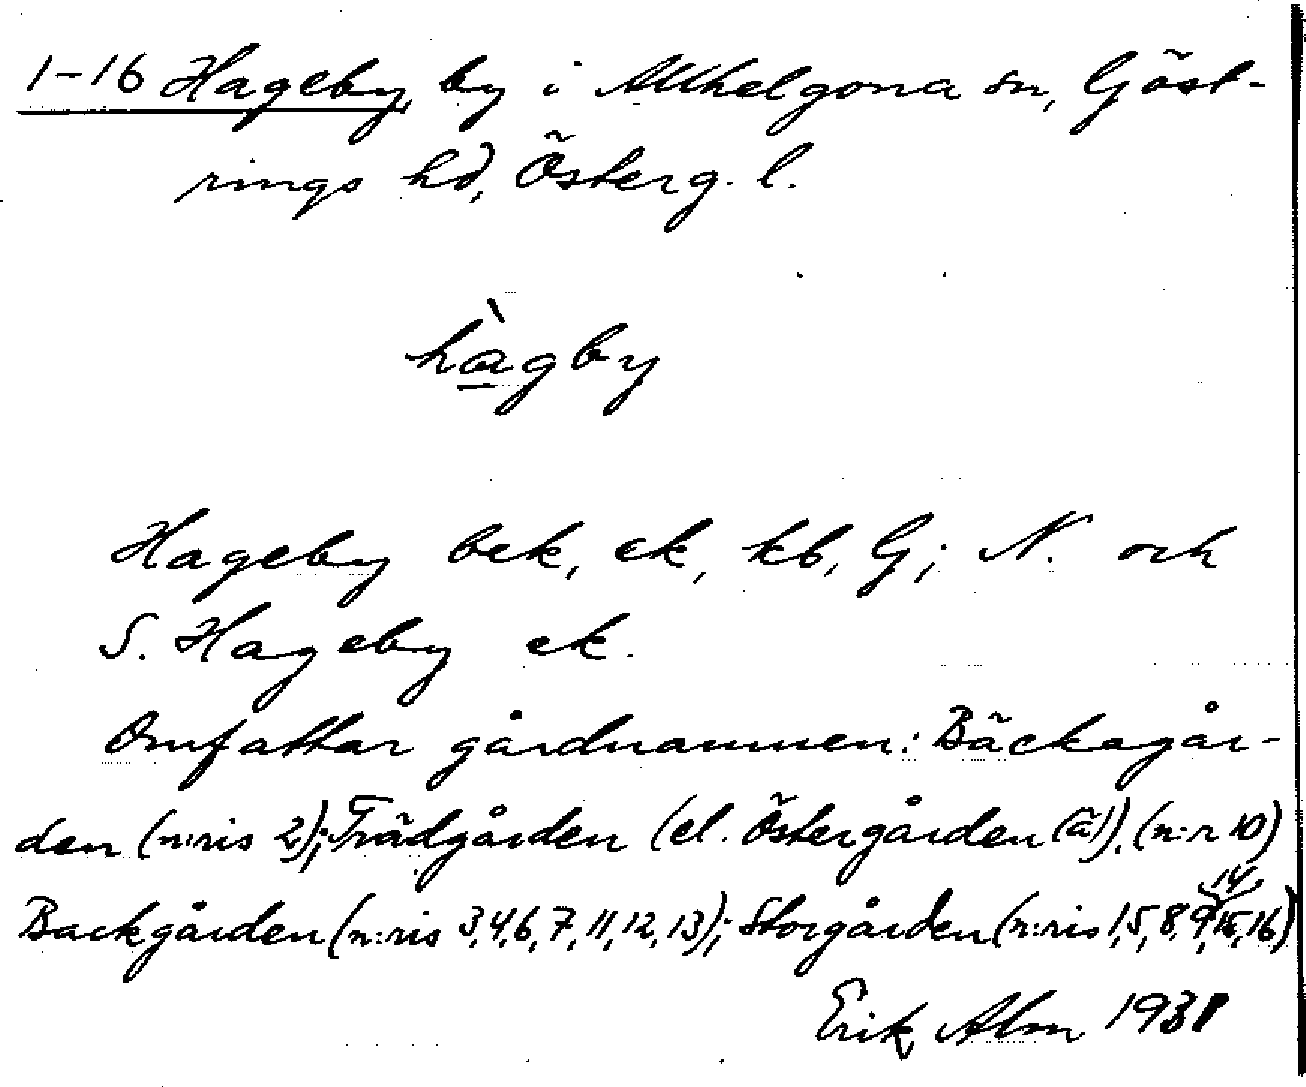 1-16 Hageby, by i Allhelgona sn, Göst-
rings hd, Österg. l.
hàgby
Hageby bek, ek, kb, G; N. och
S. Hageby ek.
Omfattar gårdnamnen: Bäckagår-
den (n:ris 2); Trädgården (el. Östergården (ä)). (n:r 10)
Backgården (n:ris 3,4,6,7,11,12,13); Storgården (n:ris 1,5,8,9,14,15,16)
Erik Alm 1931